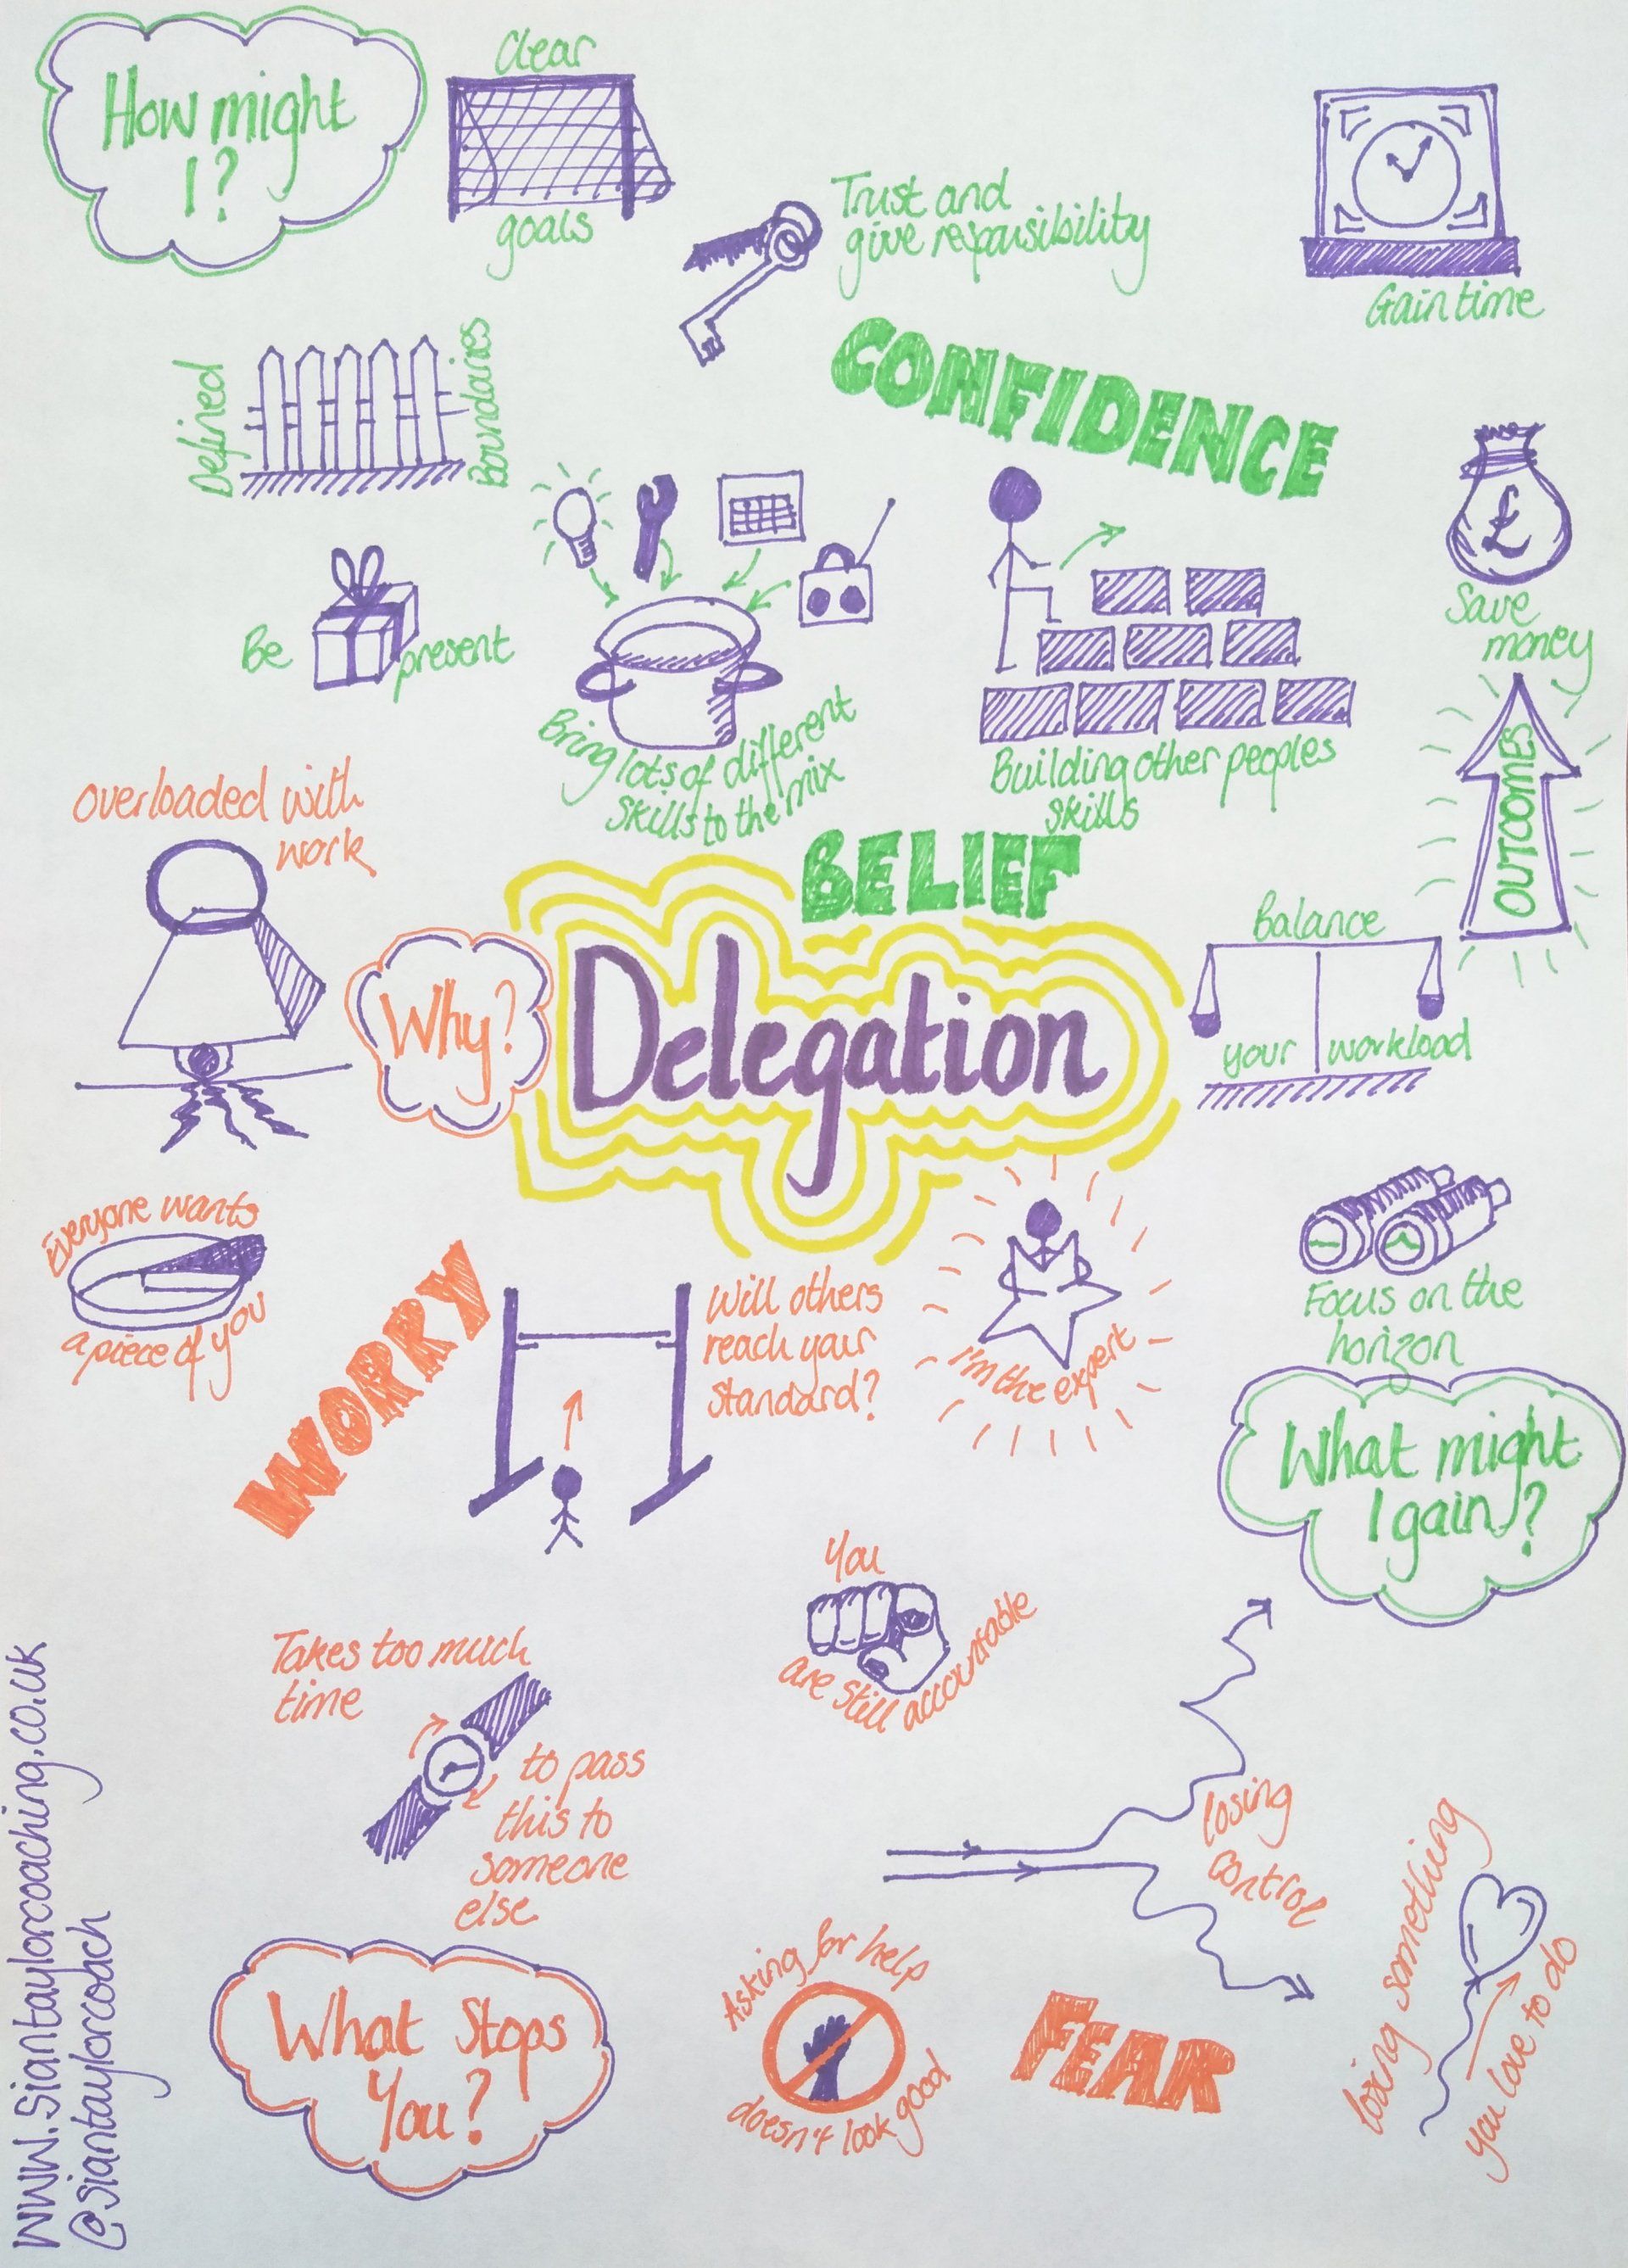 How might
I?
Clear
goals
Trust and
give reponsibility
Gain time
CONFIDENCE
Defined
Boundaires
£
Save
money
Be
present
Bring lots of different
skills to the mix
Building other peoples
skills
OUTCOMES
Overloaded with
work
BELIEF
Why?
Delegation
Balance
your workload
Everyone wants
a piece of you
WORRY
Will others
reach your
standard?
I'm the expert
Focus on the
horizon
What might
I gain?
You
are still accountable
Takes too much
time
to pass
this to
someone
else
losing
control
losing something
you love to do
What Stops
You?
Asking for help
doesn't look good
FEAR
www.siantaylorcoaching.co.uk
@siantaylorcoach